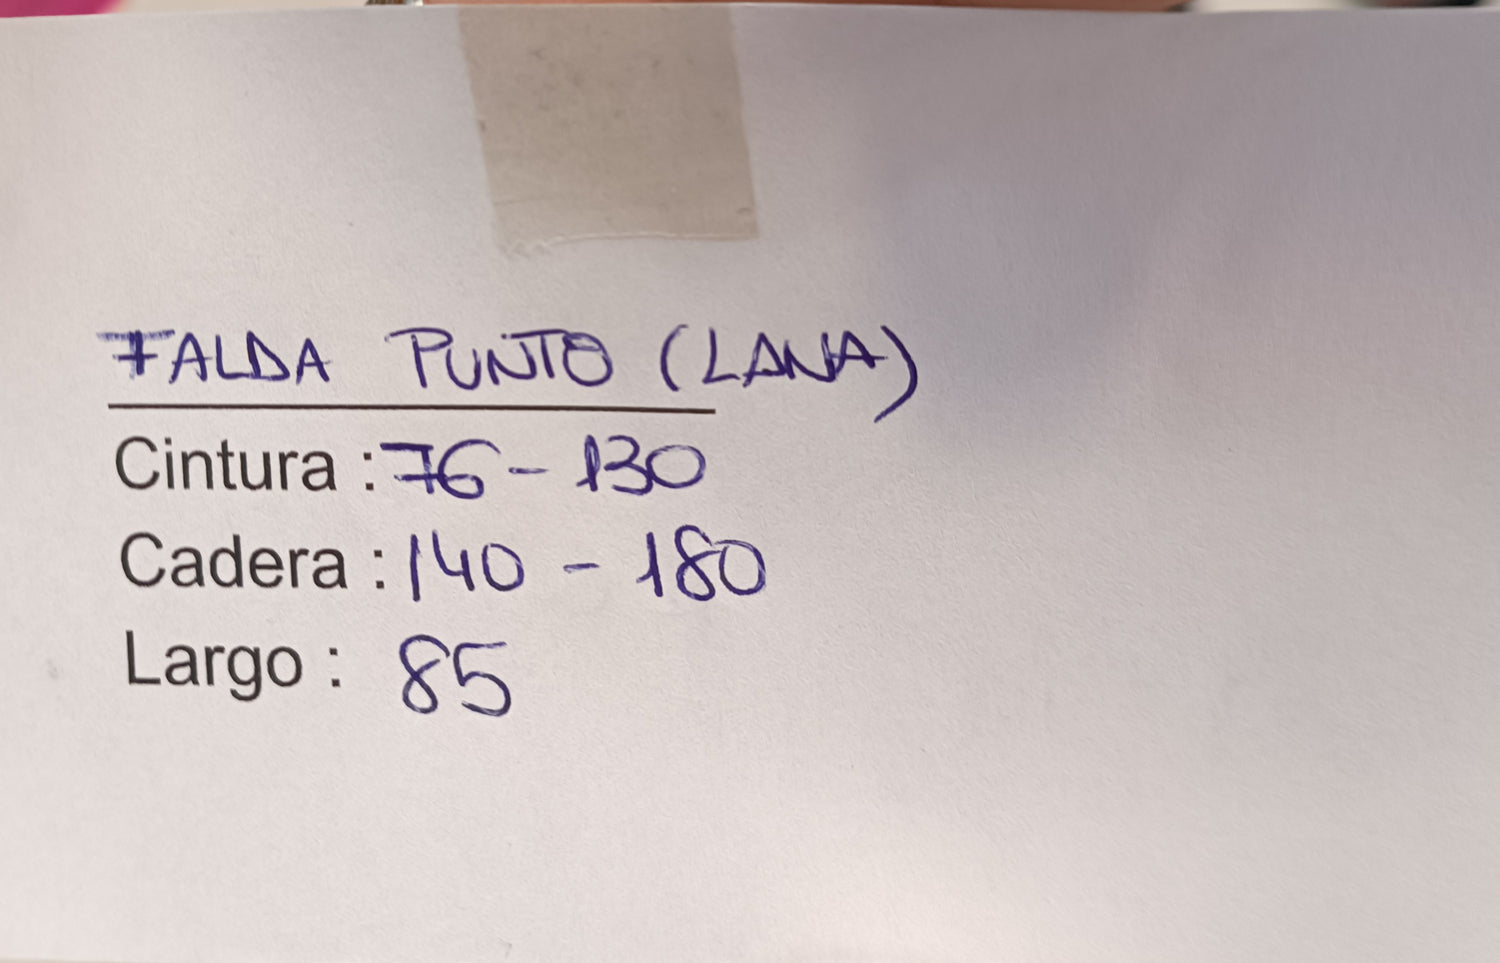 FALDA PUNTO (LANA)
Cintura : 76 - 130
Cadera : 140 - 180
Largo : 85